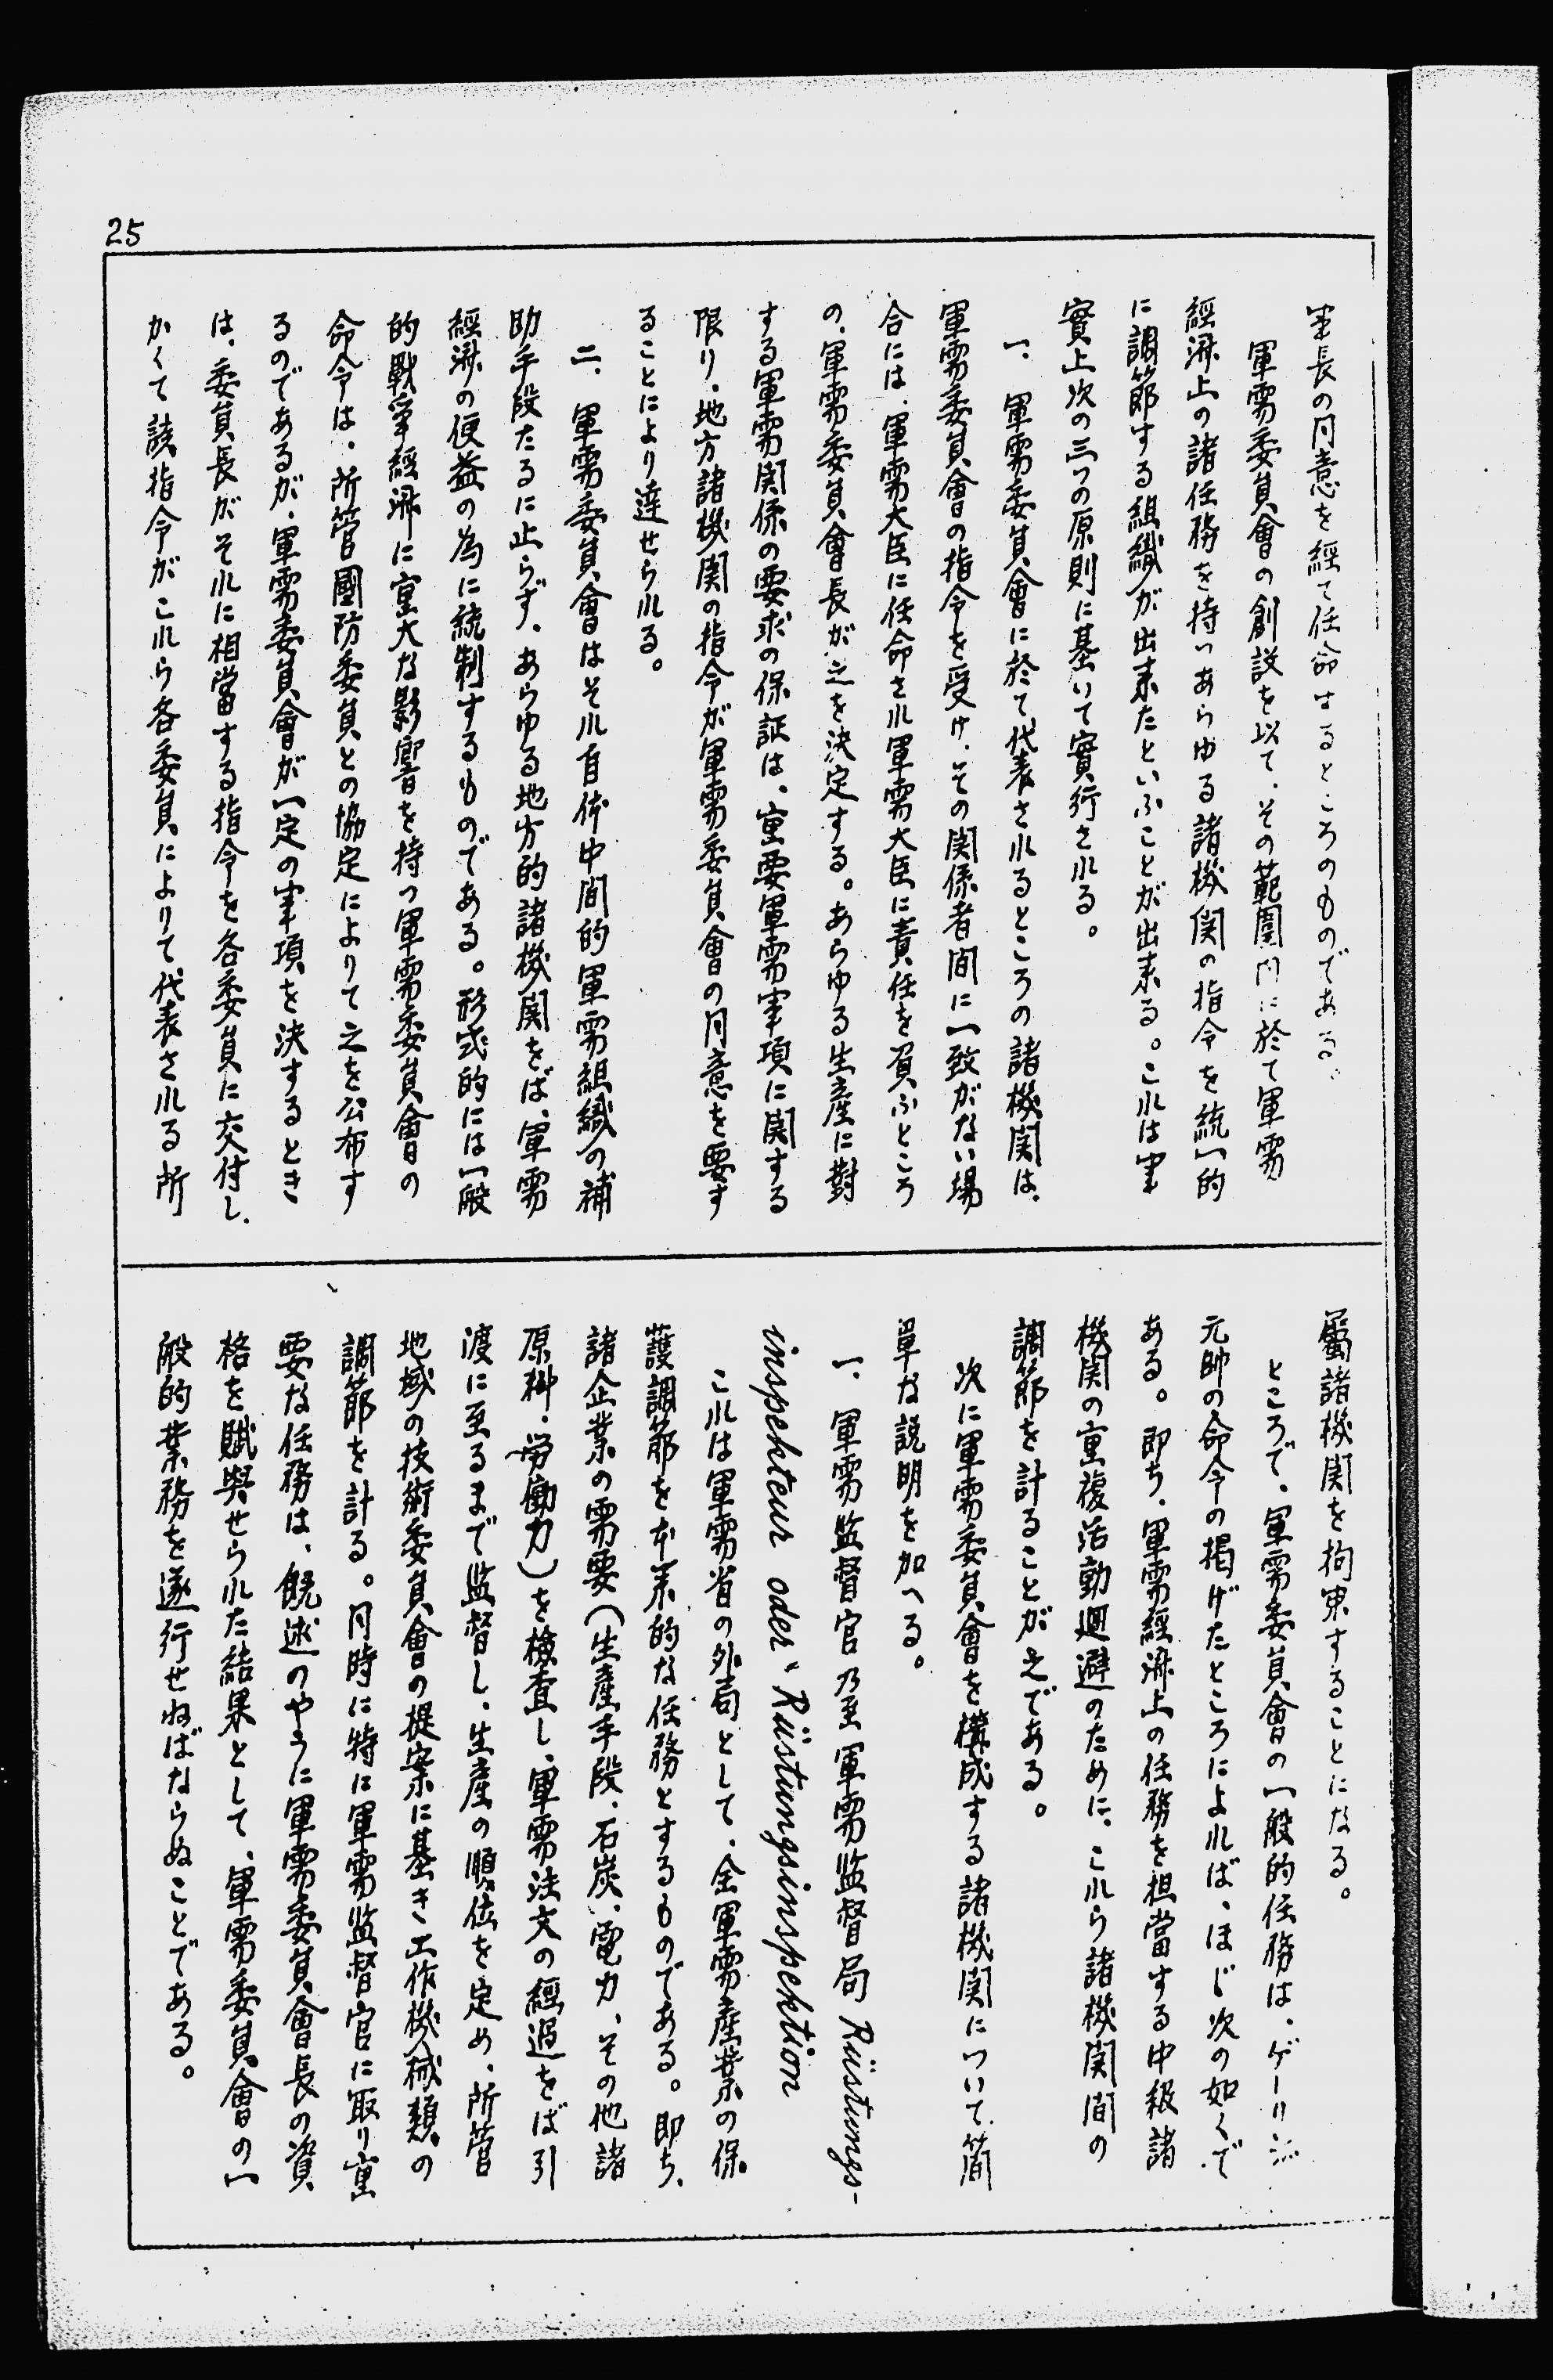 25
事長の同意を経て任命せるところのものである。
軍需委員會の創設を以て、その範圍内に於て軍需
經濟上の諸任務を持つあらゆる諸機関の指令を統一的
に調節する組織が出来たといふことが出来る。これは事
實上次の三つの原則に基いて實行される。
一、軍需委員會に於て代表されるところの諸機関は、
軍需委員會の指令を受け、その関係者間に一致がない場
合には、軍需大臣に任命され軍需大臣に責任を負ふところ
の、軍需委員會長が之を決定する。あらゆる生産に對
する軍需関係の要求の保証は、重要軍需事項に関する
限り、地方諸機関の指令が軍需委員會の同意を要す
ることにより達せられる。
二、軍需委員會はそれ自体中間的軍需組織の補
助手段たるに止らず、あらゆる地方的諸機関をば、軍需
經濟の便益の為に統制するものである。形式的には一般
的戰爭經濟に重大な影響を持つ軍需委員會の
命令は、所管國防委員との協定によりて之を公布す
るのであるが、軍需委員會が一定の事項を決するとき
は、委員長がそれに相當する指令を各委員に交付し、
かくて該指令がこれら各委員によりて代表される所
屬諸機関を拘束することになる。
ところで、軍需委員會の一般的任務は、ゲーリング
元帥の命令の掲げたところによれば、ほゞ次の如くで
ある。即ち、軍需經濟上の任務を担當する中級諸
機関の重複活動廻避のために、これら諸機関間の
調節を計ることが之である。
次に軍需委員會を構成する諸機関について、簡
單な説明を加へる。
一、軍需監督官乃至軍需監督局 Rüstungs-
inspekteur oder "Rüstungsinspektion
これは軍需省の外局として、全軍需産業の保
護調節を本来的な任務とするものである。即ち、
諸企業の需要（生産手段、石炭、電力、その他諸
原料、労働力）を検査し、軍需注文の經過をば引
渡に至るまで監督し、生産の順位を定め、所管
地域の技術委員會の提案に基き工作機械類の
調節を計る。同時に特に軍需監督官に取り重
要な任務は、既述のやうに軍需委員會長の資
格を賦與せられた結果として、軍需委員會の一
般的業務を遂行せねばならぬことである。